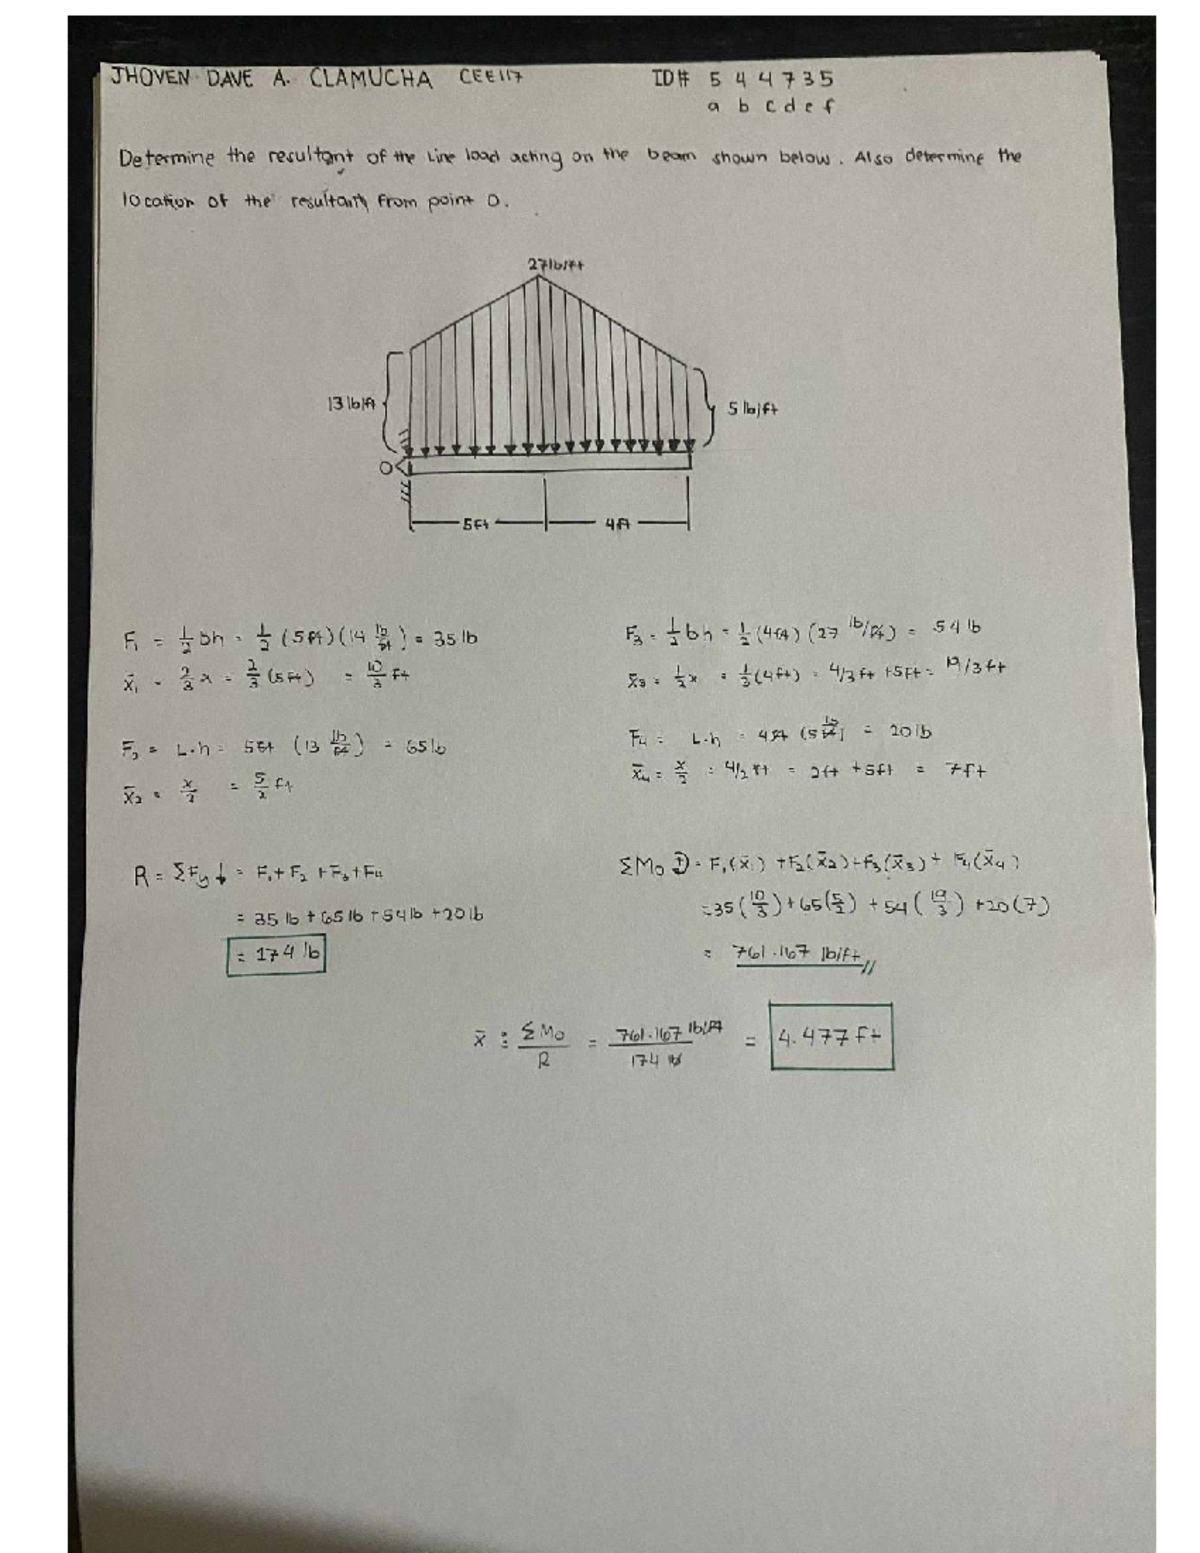 JHOVEN DAVE A. CLAMUCHA CEE117 ID# 5 4 4 7 3 5
a b c d e f
Determine the resultant of the Line load acting on the beam shown below. Also determine the
location of the resultant from point O.
27 lb/ft
13 lb/ft
5 lb/ft
O
5ft 4ft
F₁ = 1/2 bh = 1/2 (5 ft) (14 lb/ft) = 35 lb
x̄₁ = 2/3 x = 2/3 (5 ft) = 10/3 ft
F₂ = L·h = 5 ft (13 lb/ft) = 65 lb
x̄₂ = x/2 = 5/2 ft
F₃ = 1/2 bh = 1/2 (4 ft) (27 lb/ft) = 54 lb
x̄₃ = 1/2 x = 1/3 (4 ft) = 4/3 ft + 5 ft = 19/3 ft
F₄ = L·h = 4 ft (5 lb/ft) = 20 lb
x̄₄ = x/2 = 4/2 ft = 2 ft + 5 ft = 7 ft
R = ΣFy ↓ = F₁ + F₂ + F₃ + F₄
= 35 lb + 65 lb + 54 lb + 20 lb
= 174 lb
ΣMo = F₁(x̄₁) + F₂(x̄₂) + F₃(x̄₃) + F₄(x̄₄)
= 35 (10/3) + 65 (5/2) + 54 (19/3) + 20 (7)
= 761.167 lb/ft
x̄ = ΣMo/R = 761.167 lb/ft / 174 lb = 4.477 ft